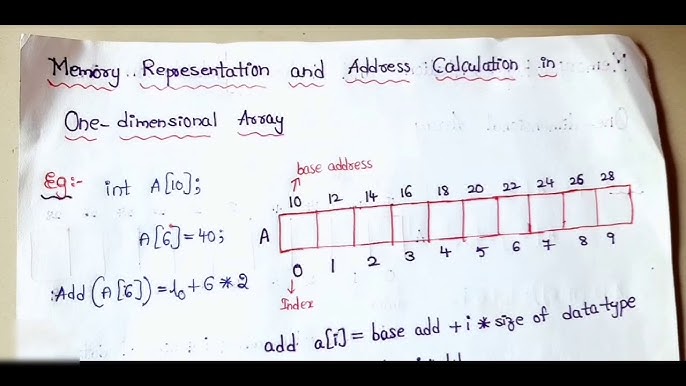 Memory Representation and Address Calculation in
One-dimensional Array
base address
Eg:- int A[10];
10 12 14 16 18 20 22 24 26 28
A[6]=40;
A
0 1 2 3 4 5 6 7 8 9
Add(A[6])=10+6*2
Index
add a[i]=base add +i*size of datatype